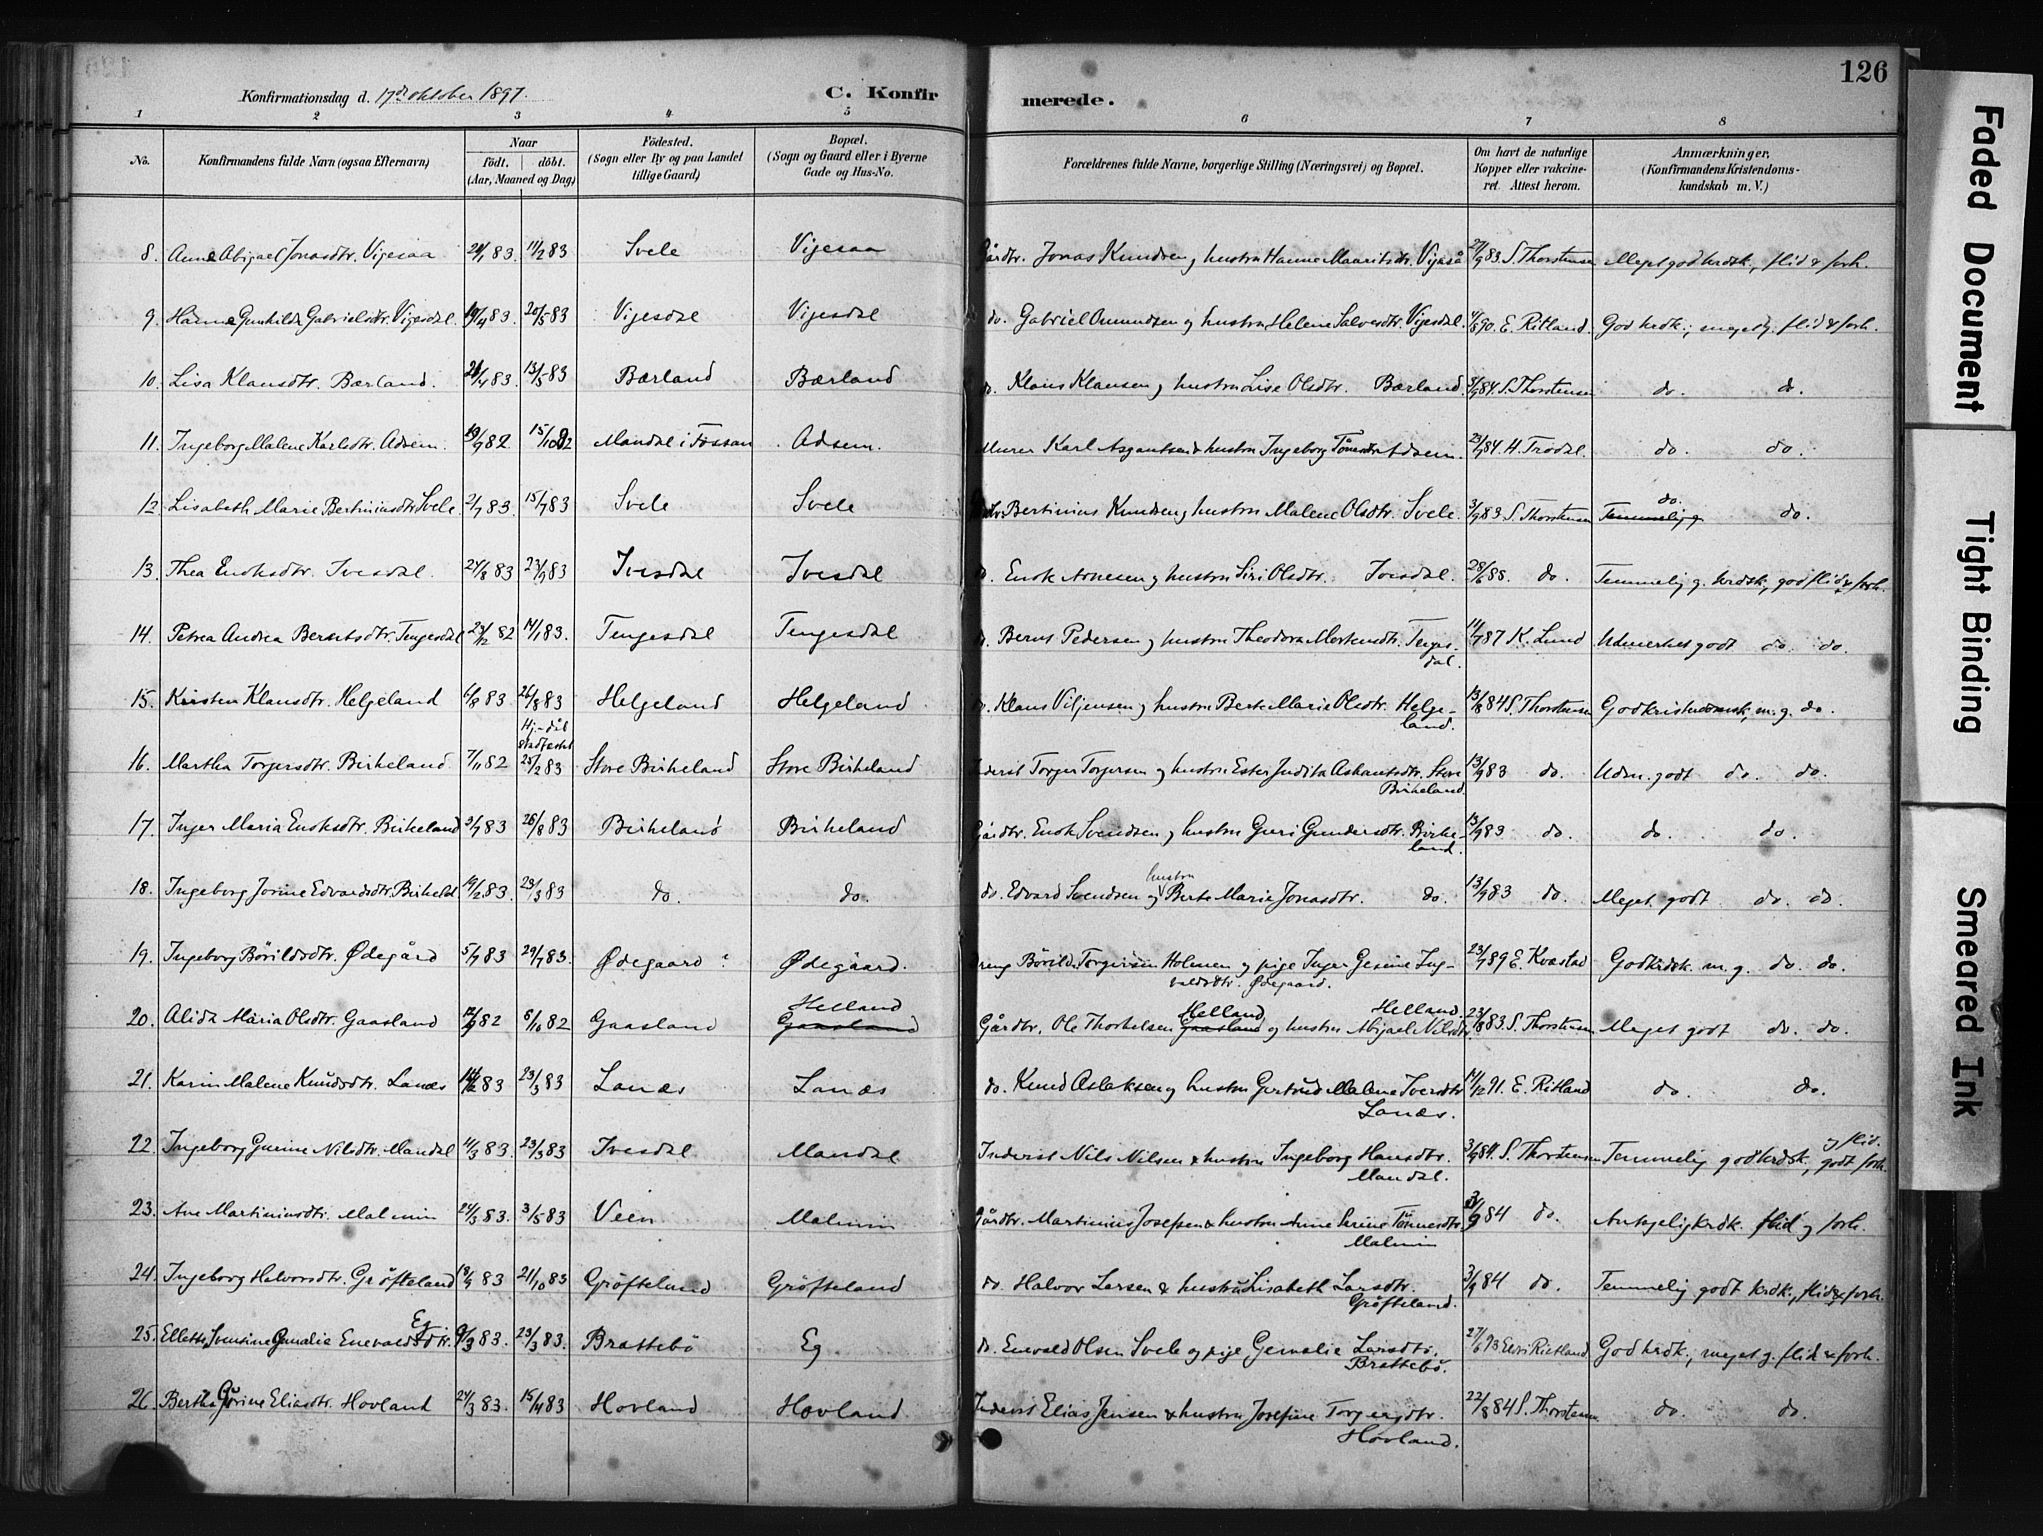 126
Konfirmationsdag d. 17de oktober 1897. C. Konfirmerede.
1 2 3 4 5 6 7 8
No. Konfirmandens fulde Navn (ogsaa Efternavn) Naar født. døbt. (Aar, Maaned og Dag) Fødested. (Sogn eller By og paa Landet tillige Gaard) Bopæl. (Sogn og Gaard eller i Byerne Gade og Hus-No. Forældrenes fulde Navne, borgerlige Stilling (Næringsvei) og Bopæl. Om havt de naturlige Kopper eller vakcineret. Attest herom. Anmærkninger, (Konfirmandens Kristendomskundskab m. V.)
8. Anne Abigael Jonasdtr. Vigesaa 83. 11/2 83 Svele Vigesaa Gårdbr. Jonas Knudsen og hustru Hanne Mauritsdtr. Vigeså 27/9 83 S. Thorstensen Meget god krdsk., flid & forh.
9. Hanne Gunhilda Gabrielsdtr. Vigesdal. 19/4 83. 20/5 83 Vigesdal Vigesdal do. Gabriel Omundsen og hustru Helene Salvesdtr. Vigesdal. 4/8 90. E. Ritland. God krdk., meget g. flid & forh.
10. Lisa Klausdtr. Bærland. 21/4 83. 13/5 83 Bærland Bærland do. Klaus Klausen og hustru Lise Olsdtr. Bærland. 3/9 84. S. Thorstensen do. do.
11. Ingeborg Malene Karlsdtr. Adsem. 19/9 82 15/10 82 Mandal i Fossan Adsem. Murer Karl Asgautsen & hustru Ingeborg Tönesdtr. Adsem. 23/9 84. H. Trodal. do. do.
12. Lisabeth Marie Bertiniusdtr. Svele. 2/7 83. 15/7 83 Svele Svele Gdbr. Bertinius Knudsen og hustru Malene Olsdtr. Svele. 3/9 83 S. Thorstensen Temmelig g do. do.
13. Thea Enoksdtr. Ivesdal. 27/8 83 23/9 83 Ivesdal Ivesdal do. Enok Arnesen og hustru Siri Olsdtr. Ivesdal. 28/6 88. do. Temmelig g. krdsk., god flid & forh.
14. Petrea Andrea Berntsdtr. Tengesdal 23/12 82 14/1 83. Tengesdal Tengesdal do. Bernt Pedersen og hustru Theodora Mortensdtr. Tengesdal. 11/7 87 K. Lund Udmerket godt do. do.
15. Kirsten Klausdtr. Helgeland 6/8 83 26/8 83 Helgeland Helgeland do. Klaus Viljensen og hustru Berte Marie Olsdtr. Helgeland. 13/8 84 S. Thorstensen God kristendomsk, m. g. do.
16. Martha Torgersdtr. Birkeland. 7/11 82 Hj.-döb stadfæstet 25/2 83 Store Birkeland Store Birkeland Inderst Torger Torgersen og hustru Ester Judita Askautsdtr. Store Birkeland. 13/9 83 do. Udm. godt do. do.
17. Inger Maria Enoksdtr. Birkeland 3/7 83 26/8 83 Birkeland Birkeland Gårdbr. Enok Svendsen og hustru Guri Gundersdtr. Birkeland. 13/9 83 do. do. do.
18. Ingeborg Jorine Edvardsdtr. Birkeld. 14/2 83 23/3 83 do. do. do. Edvard Svendsen og hustru Berte Marie Jonasdtr. do. 13/9 83 do. Meget godt do. do.
19. Ingeborg Börildsdtr. Ødegård 5/7 83 29/7 83. Ødegaard Ødegaard. Dreng Börild Torgersen Holmen og pige Inger Gesine Ingvaldsdtr. Ødegaard. 23/7 89 E. Kvæstad God krdsk. m. g. do. do.
20. Alida Maria Olsdtr. Gaasland 82 8/10 82 Gaasland Gaasland Helland Gårdbr. Ole Thorkelsen Gaasland Helland og hustru Abigael Nilsdtr. Helland. 23/8 83 S. Thorstensen Meget godt do. do.
21. Karin Malene Knudsdtr. Lanæs 83 23/3 83 Lanæs Lanæs do. Knud Aslaksen og hustru Gertrud Malene Iversdtr Lanæs. 14/12 91. E. Ritland do. do.
22. Ingeborg Gurine Nilsdtr. Mandal 11/3 83. 23/3 83 Ivesdal Mandal Inderst Nils Nilsen & hustru Ingeborg Hansdtr. Mandal. 3/9 84. S. Thorstensen Temmelig god krdsk., godt forh. og flid.
23. Ane Martiniusdtr. Malmin 24/3 83. 3/5 83 Veen Malmin Gårdbr. Martinius Josefsen & hustru Anne Serine Tönnesdtr. Malmin 3/9 84 do. Antagelig krdk. flid og forh.
24. Ingeborg Halvorsdtr. Gröfteland 18/9 83. 21/10 83 Gröfteland Gröfteland do. Halvor Larsen & hustru Lisabeth Larsdtr. Gröfteland. 3/9 84 do. Temmelig godt krdk., flid & forh.
25. Ellette Sventine Gemalie Enevaldsdtr. Eg 9/3 83. 23/3 83. Brattebö Eg. do. Enevald Olsen Svele og pige Gemalie Larsdtr. Brattebö. 27/6 93 Rietland God krdk., meget g. flid & forh.
26. Berthe Gurine Eliasdtr. Hovland 24/3 83. 15/4 83 Hovland Hovland Inderst Elias Jensen & hustru Josefine Torgersdtr. Hovland. 22/8 84 S. Thorstensen do. do.
Faded Document
Tight Binding
Smeared Ink